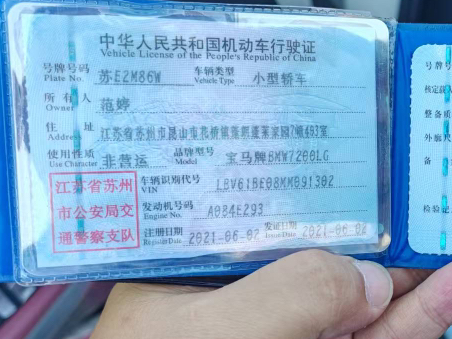 中华人民共和国机动车行驶证
Vehicle License of the People's Republic of China
号牌号码 苏E2M86W 车辆类型 小型轿车
Plate No. Vehicle Type
所有人 范婷
Owner
住址 江苏省苏州市昆山市花桥镇
Address
使用性质 非营运 品牌型号 宝马牌BMW7200LG
Use Character Model
江苏省苏州
市公安局交
通警察支队
车辆识别代号 LBV61BE08MM091302
VIN
发动机号码 A084E293
Engine No.
注册日期 2021-06-02 发证日期 2021-06-02
Register Date Issue Date
号牌
核定载
整备质
外廓尺
备
检验记